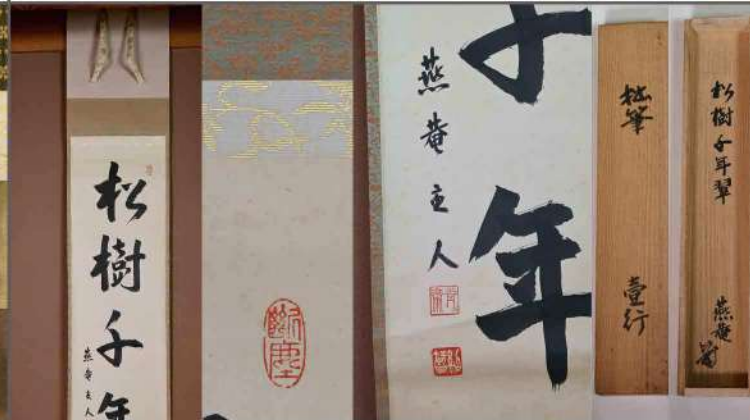 松樹千年
燕庵主人
千年
燕庵主人
拙筆
壹行
松樹千年翠
燕庵